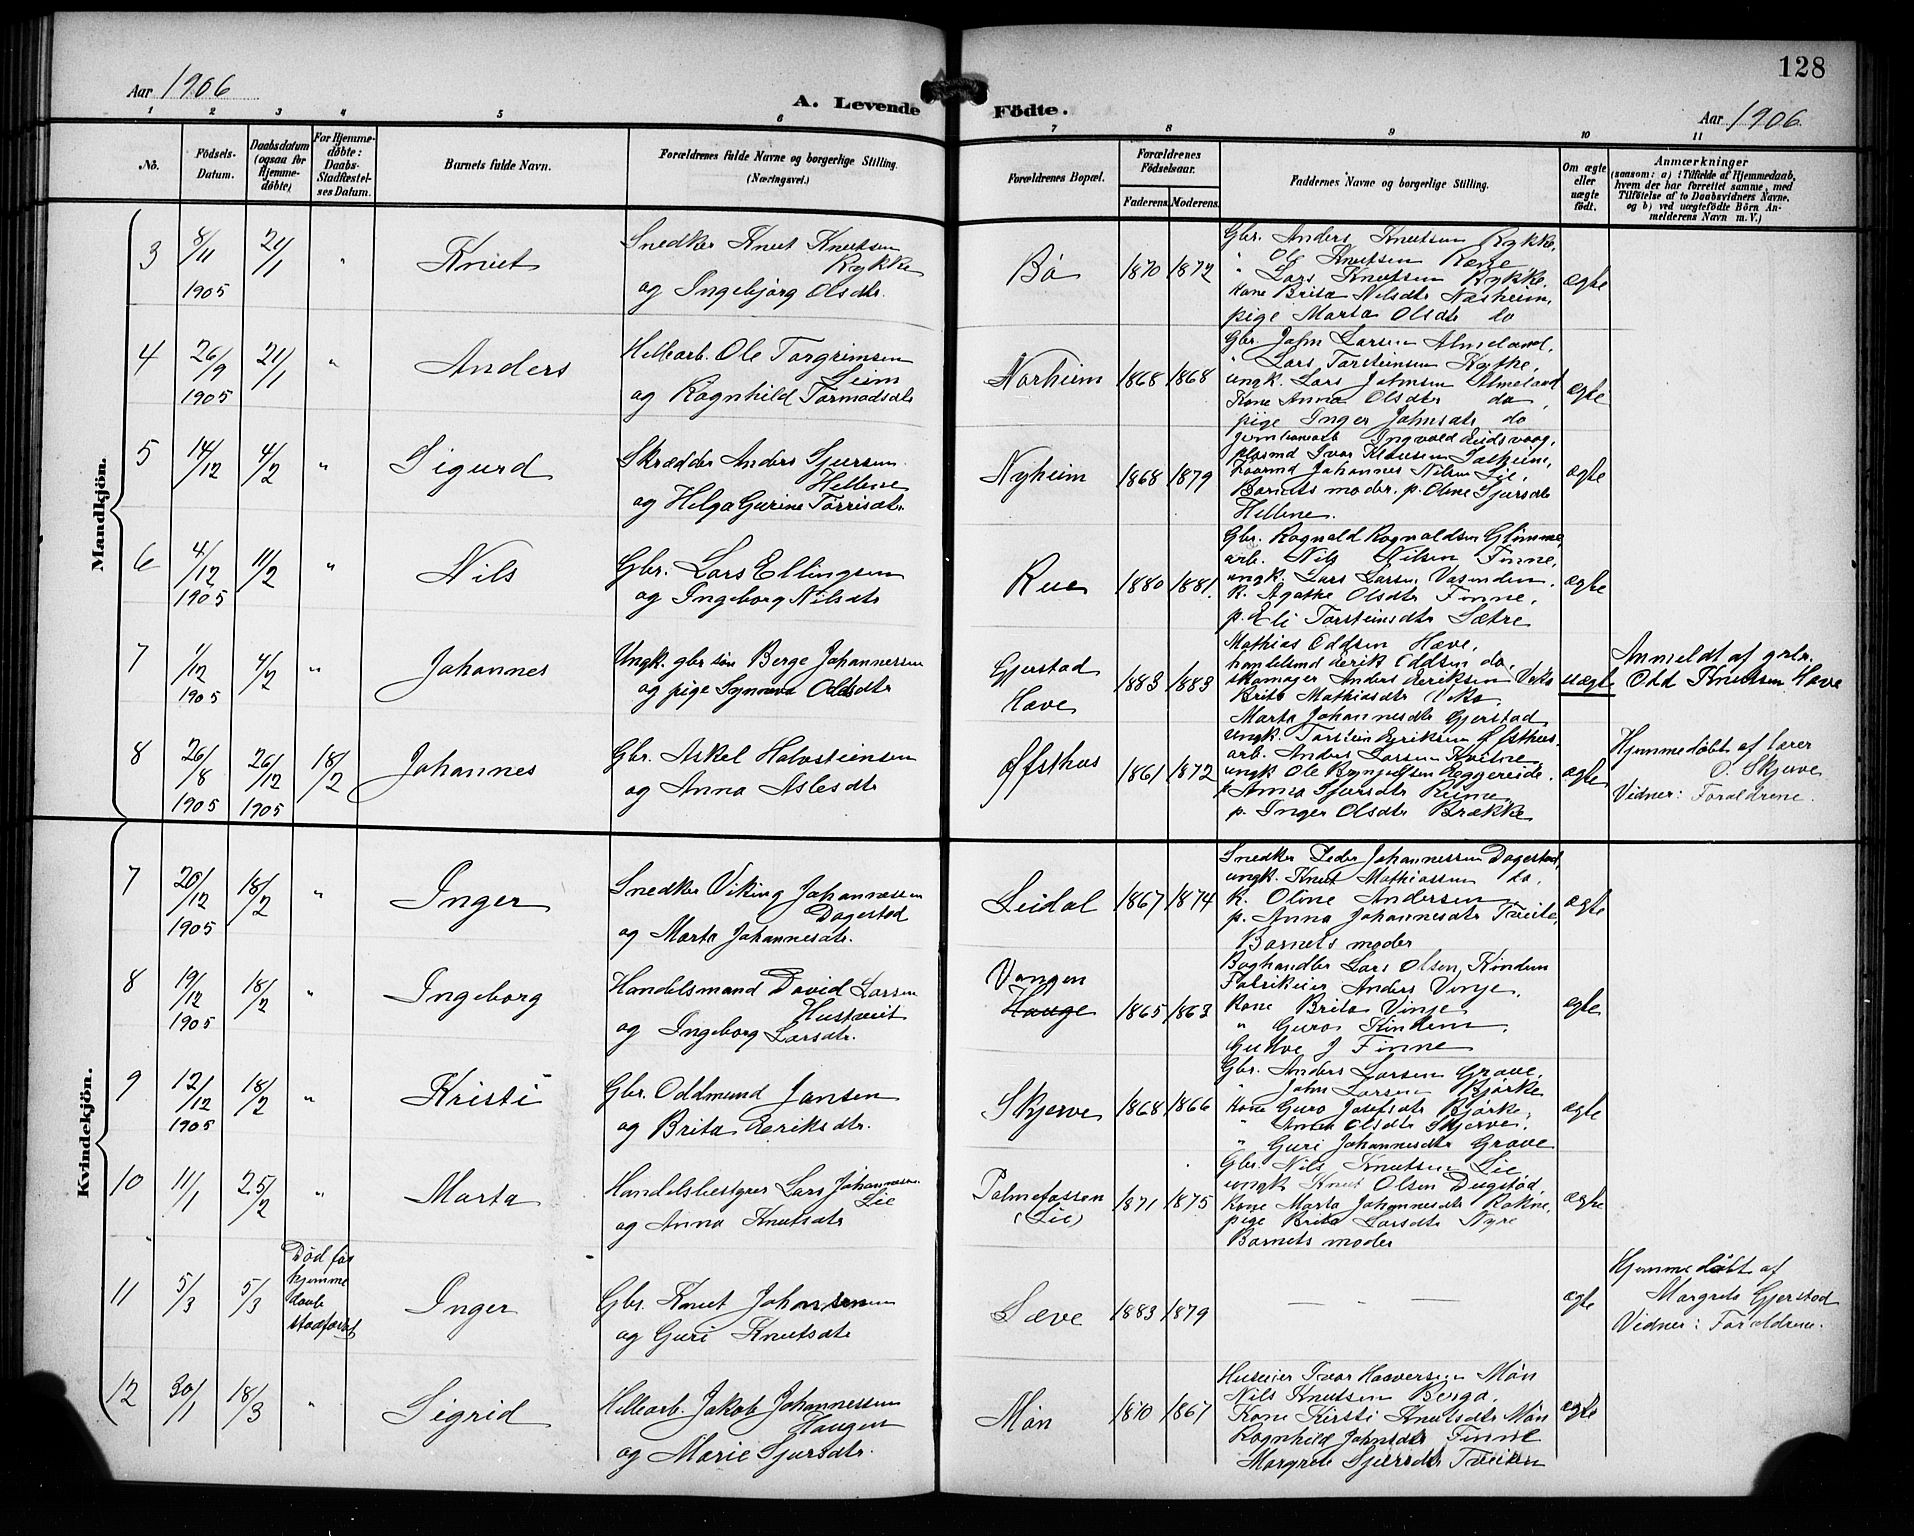 128
Aar 1906
A. Levende Födte.
Aar 1906
1 2 3 4 5 6 7 8 9 10 11
No.
Födsels-Datum.
Daabsdatum (ogsaa for Hjemme-döbte).
For Hjemme-döbte: Daabs-Stadfæstel-ses Datum.
Barnets fulde Navn.
Forældrenes fulde Navne og borgerlige Stilling. (Næringsvei.)
Forældrenes Bopæl.
Forældrenes Födselsaar.
Faderens. Moderens.
Faddernes Navne og borgerlige Stilling.
Om ægte eller uægte födt.
Anmærkninger
(saasom: a) i Tilfælde af Hjemmedaab, hvem der har forrettet samme, med Tilföielse af to Daabsvidners Navne, og b) ved uægtefödte Börn An-melderens Navn m. V.)
Mandkjön.
3 8/11 1905 21/1 " Knut
Snedker Knut Knutsen Rykke
og Ingebjørg Olsdtr.
Bø 1870 1872
Gbr. Anders Knutsen Rykke,
" Ole Knutsen
" Lars Knutsen Rykke.
Kone Brita Nilsdtr Næsheim,
pige Marta Olsdtr do
ægte
4 26/9 1905 21/1 " Anders
Hellearb. Ole Torgrimsen Seim
og Ragnhild Tormodsdtr
Norheim 1868 1868
Gbr. John Larsen Almeland,
" Lars Torsteinsen Kythe,
ungk. Lars Johnsen Almeland
Kone Anna Olsdtr do,
pige Inger Johnsdtr do
ægte
5 14/12 4/2 " Sigurd
Skrædder Anders Sjursen Hellene
og Helga Gurine Torrisdtr.
Nyheim 1868 1879
Ingvald Eidsvaag,
plasmd Ivar Klausen Sætheim,
Johannes Nilsen Lie,
Barnets moder. p. Oline Sjursdtr
Hellene.
ægte
6 4/12 1905 11/2 " Nils
Gbr. Lars Ellingsen
og Ingeborg Nilsdtr
Rue 1880 1881.
Gbr. Ragnald Ragnaldsen Glimme,
arb. Nils Nilsen Finne,
ungk. Lars Larsen Vasenden,
K. Agathe Olsdtr Finne,
p. Eli Torsteinsdtr Sætre
ægte
7 1/12 1905 4/2 " Johannes
Ungk. gbr søn Berge Johannessen
og pige Synneva Oddsdtr
Gjerstad
Have 1883 1883
Mathias Oddsen Have,
handelsmd Eerik Oddsen do,
skomager Anders Eeriksen Veka
Brita Mathiasdtr Veka,
Marta Johannesdtr Gjerstad
uægte
Anmeldt af gbr.
Odd Knutsen Have
8 26/8 1905 26/12 1905 18/2 Johannes
Gbr. Askel Halvsteinsen
og Anna Aslesdtr
Øfsthus 1861 1872
ungk. Torstein Eeriksen Øfsthus,
arb. Anders Larsen Kvitne,
ungk Ole Brynjulfsen Eggereide.
p. Anna Sjursdtr Reime,
p. Inger Olsdtr Brække
ægte
Hjemmedøbt af lærer
O. Skjerve
Vidner: Forældrene.
Kvindekjön.
7 20/12 1905 18/2 " Inger
Snedker Viking Johannessen Dagestad
og Marta Johannesdtr.
Leidal 1867 1874
Snedker Peder Johannessen Dagestad,
ungk. Knut Mathiassen do,
K. Oline Andersen
p. Anna Johannesdtr Tveite,
Barnets moder
ægte
8 19/12 1905 18/2 " Ingeborg
Handelsmand David Larsen Hustveit
og Ingeborg Larsdtr.
Vangen
Hauge 1865 1863
Boghandler Lars Olsen Kindem
Fabrikeier Anders Vinje,
Kone Brita Vinje
" Guro Kindem,
Gudve J Finne
egte
9 12/12 1905 18/2 " Kristi
Gbr. Oddmund Jansen
og Brita Eeriksdtr.
Skjerve 1868 1866
Gbr. Anders Larsen Grave,
" John Larsen Bjørke
Kone Guro Josefsdtr Bjørke,
" Anna Olsdtr Skjerve,
" Guri Johannesdtr Grave
ægte
10 11/1 25/2 " Marta
Handelsbestyrer Lars Johannessen Lie
og Anna Knutsdtr
Palmefossen
(Lie) 1871 1875
Gbr. Nils Knutsen Lie
ungk Knut Olsen Dugstad
Kone Marta Johannesdtr Rokne,
pige Brita Larsdtr Nyre
Barnets moder
ægte
11 5/3 5/3
Død før
hjemme
daab
stadfæstet
Inger
Gbr. Knut Johannesen
og Guri Knutsdtr
Sæve 1883 1879
— - —
ægte
Hjemmedøbt af
Margrete Gjerstad
Vidner: Forældrene.
12 30/1 18/3 " Sigrid
Hellearb. Jakob Johannessen Haugen
og Marie Sjursdtr.
Møn 1870 1867
Huseier Ivar Haaversen Møn
Nils Knutsen Berga,
Kone Kirsti Knutsdtr Møn
Ragnhild Johnsdtr Finne
Margrete Sjursdtr Tveiten
ægte